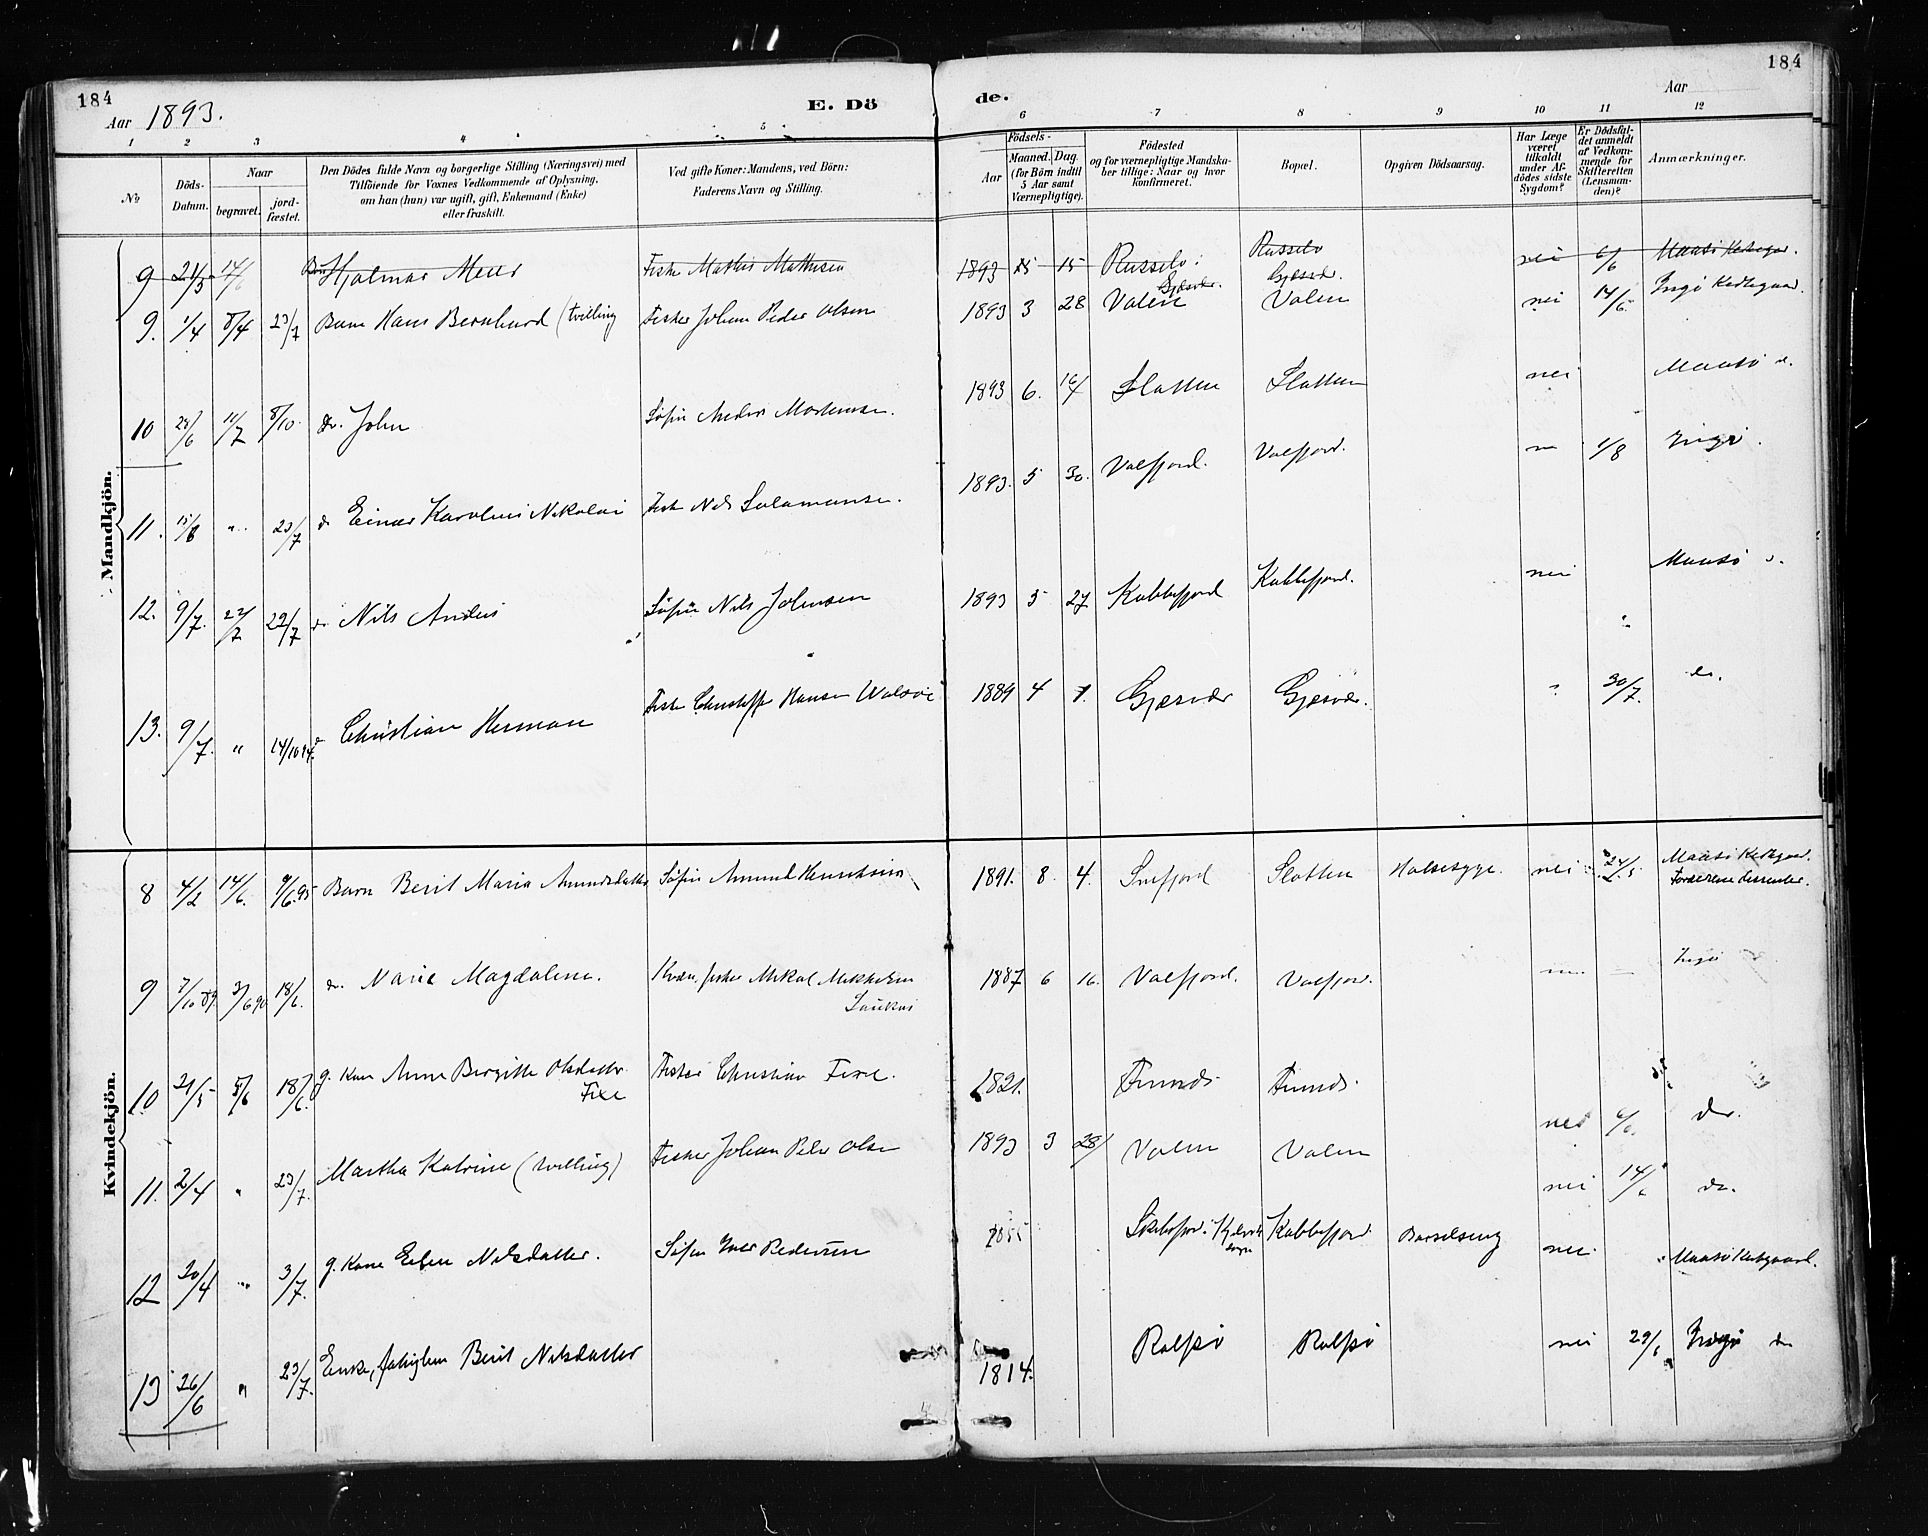 184
Aar 1893.
E. Dö
de.
Aar
184
1 2 3 4 5 6 7 8 9 10 11 12
No
Döds-Datum.
Naar
begravet.
jord-fæstet.
Den Dödes fulde Navn og borgerlige Stilling (Næringsvei) med
Tilföiende for Voxnes Vedkommende af Oplysning,
om han (hun) var ugift, gift, Enkemand (Enke)
eller fraskilt.
Ved gifte Koner: Mandens, ved Börn:
Faderens Navn og Stilling.
Födsels-
Aar
Maaned. Dag.
(for Börn indtil
5 Aar samt
Værnepligtige).
Födested
og for værnepligtige Mandska-
ber tillige: Naar og hvor
konfirmeret.
Bopæl.
Opgiven Dödsaarsag.
Har Læge
været
tilkaldt
under Af-
dödes sidste
Sygdom?
Er Dödsfal-
det anmeldt
af Vedkom-
mende for
Skifteretten
(Lensman-
den)?
Anmærkninger.
Mandkjön.
9 21/5 14/6 Barn Hjalmar Meier Fisker Mathis Mathisen 1893 15 Russelv Russelv nei 6/6 Maasö Kirkegaar.
Gjæsvær. Gjæsvær.
9. 1/4 8/4 23/7 Barn Hans Bernhard (tvilling Fisker Johan Peder Olsen 1893 3 28 Valen Valen nei 14/6. Ingö Kirkegaard.
10 11/7 8/10 do. John Söfin Anders Mortensen. 1893 6. 16/ Slatten Slatten nei Maasö d.
11. 15/6 " 23/7 do Einar Karolius Nikolai Fisker Nils Salamonsen. 1893. 5 30. Valfjord. Valfjord. 1/8 Ingö.
12. 9/7. 22/7 22/7 do Nils Anders Söfin Nils Johnsen 1893 5 27 Kobbefjord Kobbefjord. nei Maasö d.
13. 9/7. " 14/10 94. Christian Herman Fisker Christoffer Hansen 1889 4 7. Gjæsvær Gjæsvær. " 30/7. do.
Kvindekjön.
8 4/2 14/6. 9/6.95 Barn Berit Maria Amundsdatter Söfin Amund Henriksen 1891. 8. 4. Snefjord Slatten Halsesyge. nei 24/5 Maasö Kirkegaard.
Forældrene dissenter.
9 7/10 89. 3/6 90 18/6. do. Marie Magdalene. Kvæn, fisker Mikal Mikkelsen 1887 6 16. Valfjord. Valfjord. Ingö
10 21/5 5/6 18/6. g. Kone Anne Birgitte Olsdatter Fisker Christian Fixe. 1821.
Fixe
nei 6/6. do.
11. 2/4 " 23/7. Martha Katrine (tvilling) Fisker Johan Peder Olsen 1893 3 28/ Valen Valen nei 14/6 do.
12 30/4 " 3/7. g. Kone Ellen Nilsdatter. Söfin Iver Pedersen 1855 Kobbefjord Barselseng nei Maasö Kirkegaard.
13 26/6 " 23/7. Enke, Berit Nilsdatter 1814. Rolfsö Rolfsö nei 29/6 Ingö do